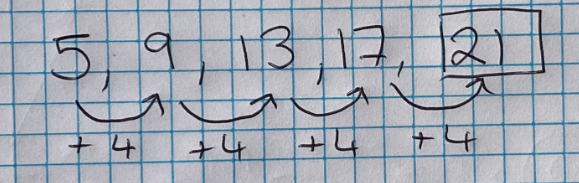 5, 9, 13, 17, 21
+4 +4 +4 +4